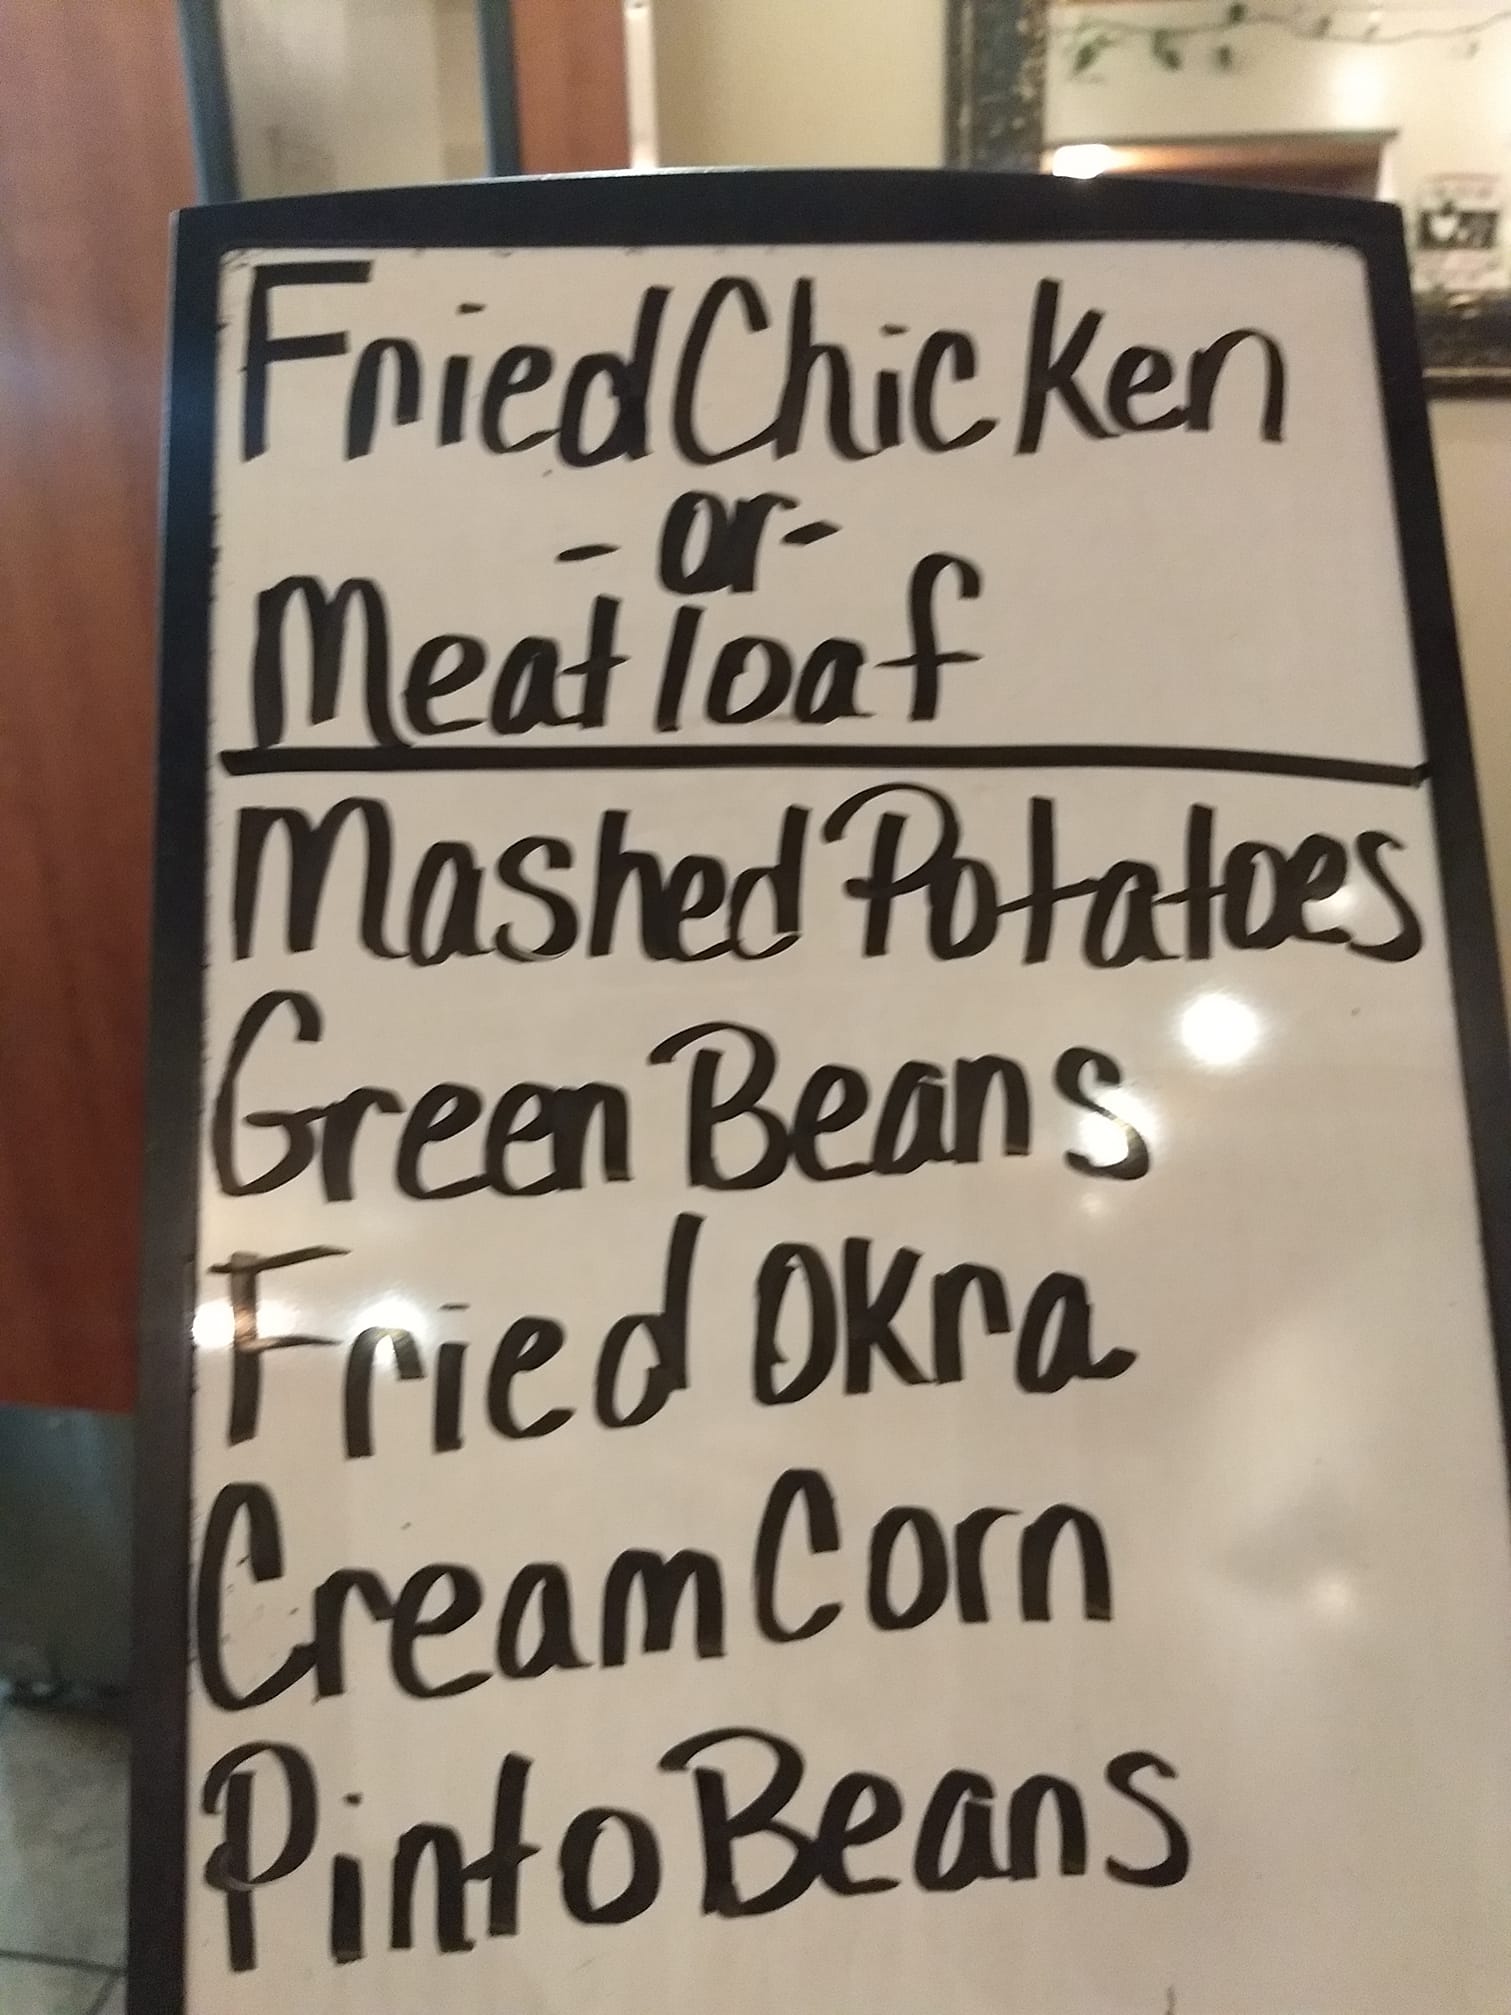 Fried Chicken
- or -
Meatloaf
Mashed Potatoes
Green Beans
Fried Okra
Cream Corn
Pinto Beans